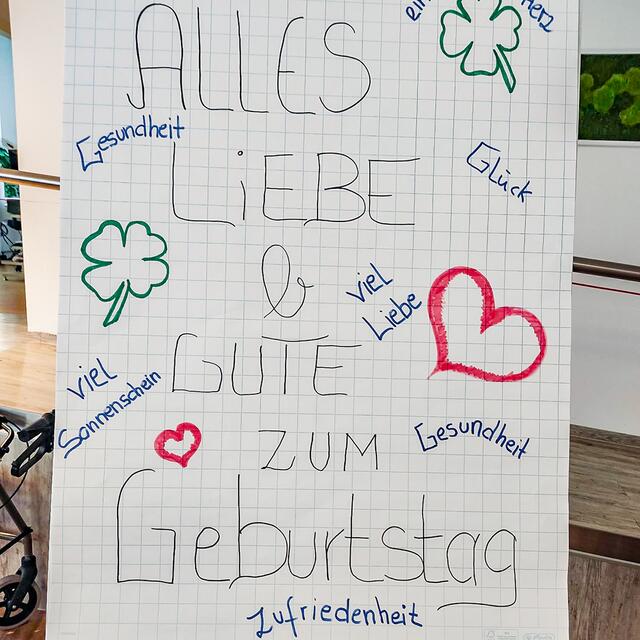 ein
Herz
ALLES
Gesundheit
LiEBE
Glück
&
viel
Liebe
GUTE
viel
Sonnenschein
ZUM
Gesundheit
Geburtstag
Zufriedenheit